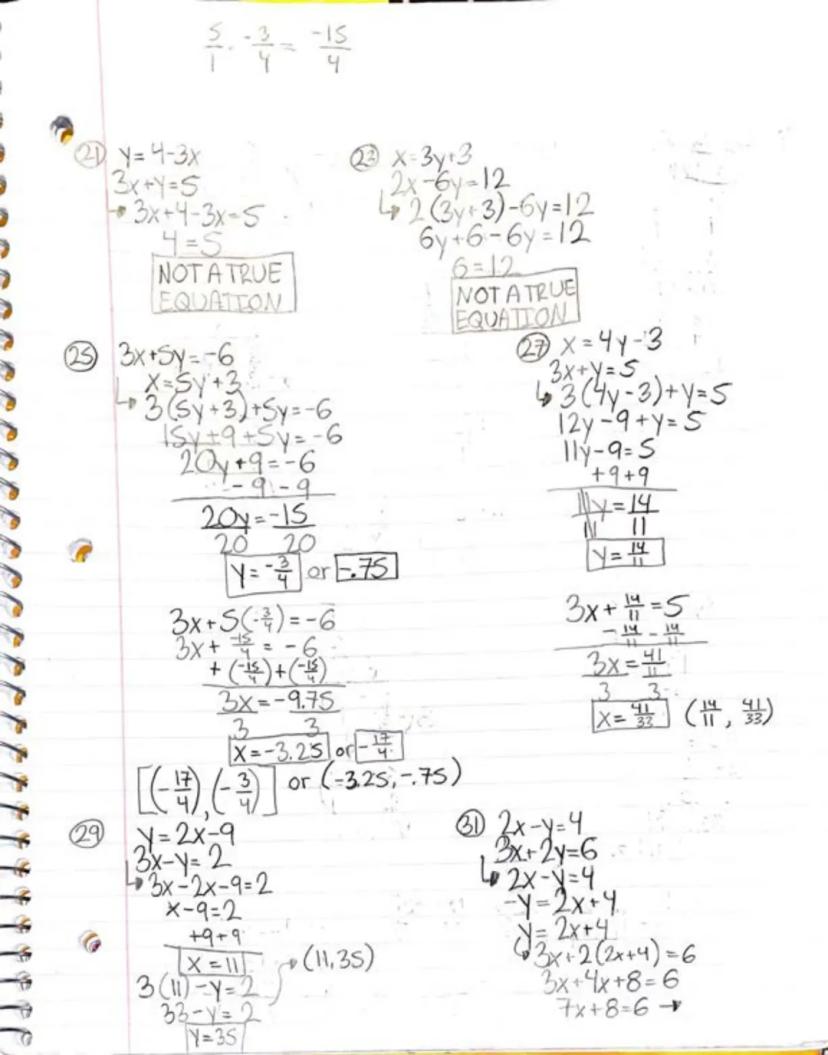 5/1 · -3/4 = -15/4
21 y = 4-3x
3x+y=5
→ 3x+4-3x=5
4=5
NOT A TRUE
EQUATION
23 x=3y+3
2x-6y=12
↳ 2(3y+3)-6y=12
6y+6-6y=12
6=12
NOT A TRUE
EQUATION
25 3x+5y=-6
x=5y+3
↳ 3(5y+3)+5y=-6
15y+9+5y=-6
20y+9=-6
-9 -9
20y=-15
20 20
y=-3/4 or -.75
3x+5(-3/4)=-6
3x+ -15/4 = -6
+(-15/4)+(-15/4)
3x=-9.75
3 3
x=-3.25 or -17/4
[(-17/4),(-3/4)] or (-3.25,-.75)
27 x=4y-3
3x+y=5
↳ 3(4y-3)+y=5
12y-9+y=5
11y-9=5
+9+9
11y=14
11 11
y=14/11
3x+14/11=5
-14/11 -14/11
3x=41/11
3 3
x=41/33 (14/11, 41/33)
29 y=2x-9
3x-y=2
↳ 3x-2x-9=2
x-9=2
+9+9
x=11 → (11,35)
3(11)-y=2
33-y=2
y=35
31 2x-y=4
3x+2y=6
↳ 2x-y=4
-y=2x+4
y=2x+4
↳ 3x+2(2x+4)=6
3x+4x+8=6
7x+8=6 →